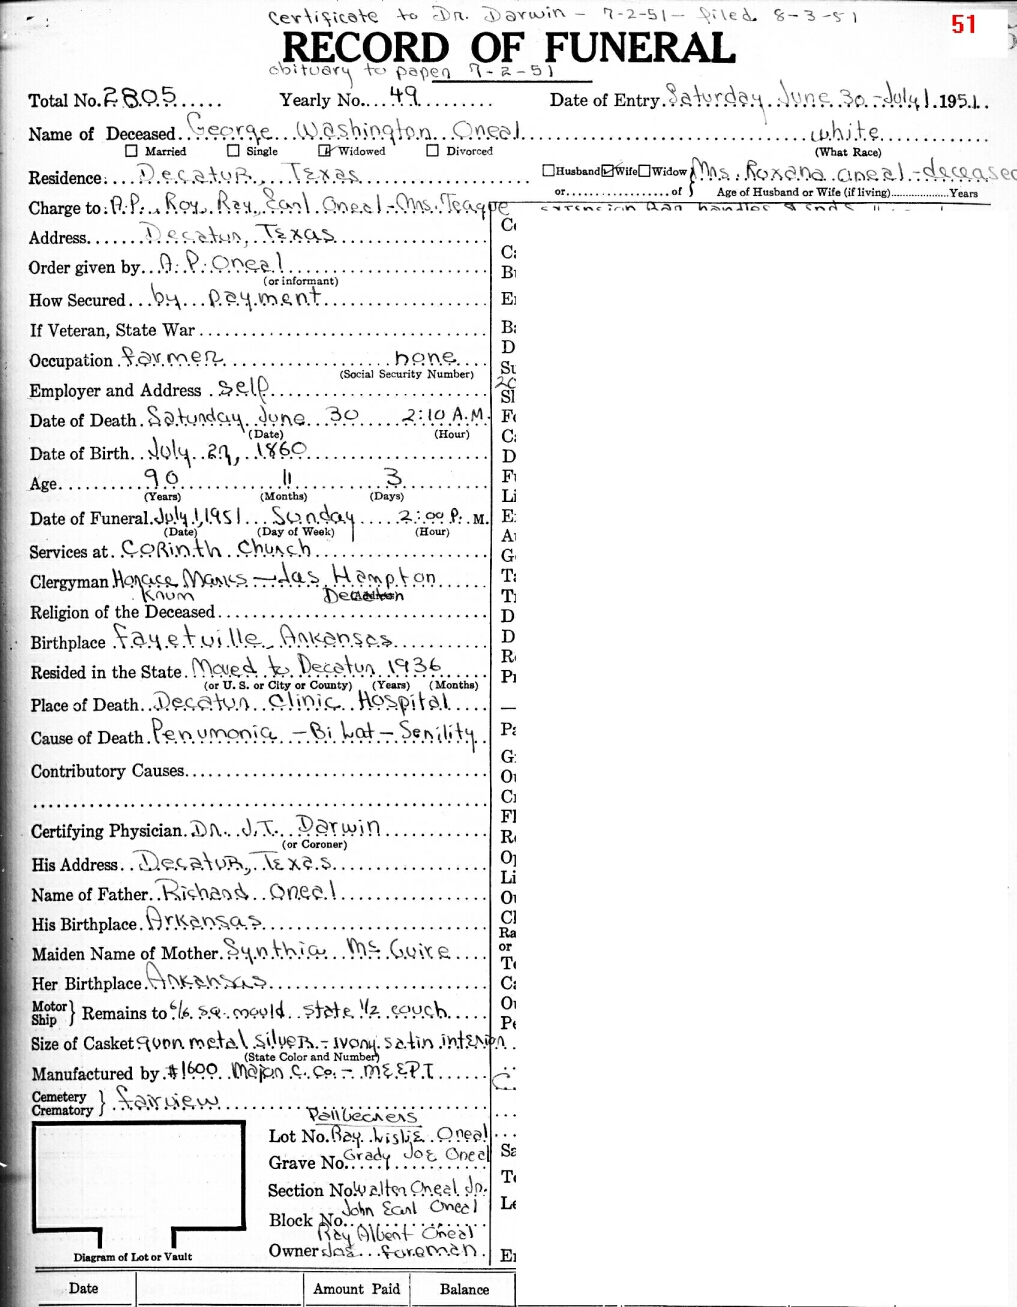 Certificate to Dr. Darwin - 7-2-51 - filed 8-3-51
51
RECORD OF FUNERAL
obituary to paper 7-2-51
Total No. 2805 Yearly No. 49 Date of Entry Saturday June 30 - July 1 1951
Name of Deceased George Washington Oneal white
Married Single Widowed Divorced (What Race)
Residence: Decatur, Texas Husband Wife Widow Mrs. Roxana Oneal - deceased
or of Age of Husband or Wife (if living) Years
Charge to: A.P., Roy, Ray, Earl Oneal - Ms. Teague
Address Decatur, Texas
Order given by A.P. Oneal
(or informant)
How Secured by payment
If Veteran, State War
Occupation farmer none
(Social Security Number)
Employer and Address self
Date of Death Saturday June 30 2:10 A.M.
(Date) (Hour)
Date of Birth July 27, 1860
Age 90 11 3
(Years) (Months) (Days)
Date of Funeral July 1, 1951 Sunday 2:00 P.M.
(Date) (Day of Week) (Hour)
Services at Corinth Church
Clergyman Horace Marks - Jas Hampton
Krum
Religion of the Deceased
Birthplace Fayetville, Arkansas
Resided in the State Moved to Decatur 1936
(or U. S. or City or County) (Years) (Months)
Place of Death Decatur Clinic Hospital
Cause of Death Penumonia - Bi Lat - Senility
Contributory Causes
Certifying Physician Dr. J.T. Darwin
(or Coroner)
His Address Decatur, Texas
Name of Father Richard Oneal
His Birthplace Arkansas
Maiden Name of Mother Synthia McGuire
Her Birthplace Arkansas
Motor Ship } Remains to 6/6 sq. mould state 1/2 couch
Size of Casket gunn metal silver - ivory satin interior
(State Color and Number)
Manufactured by #1600 Major C. Co. -
Cemetery Crematory } fairview
Pallbearers
Lot No. Ray Lislie Oneal
Grave No. Grady Joe Oneal
Section No. Walter Oneal Jr.
John Earl Oneal
Block No.
Ray Albert Oneal
Owner Jas. foreman
Diagram of Lot or Vault
Date Amount Paid Balance